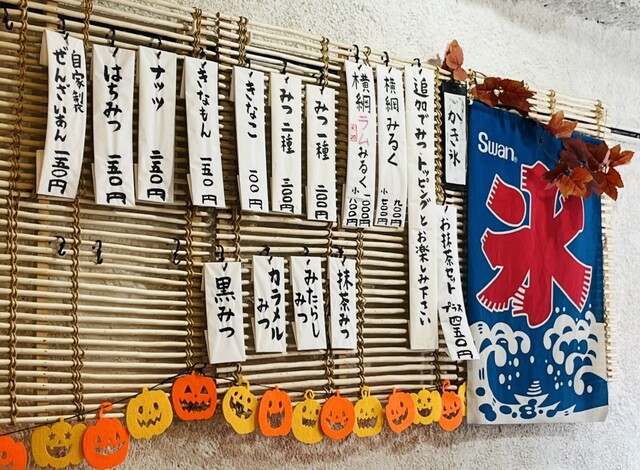 Swan
氷
Swan
かき氷
追加でみつ トッピングとお楽しみ下さい
お抹茶セット
プラス 四五〇円
横綱みるく
横綱ラムみるく
みつ一種
みつ二種
きなこ 一〇〇円
きなもん 一五〇円
ナッツ 一五〇円
はちみつ 一五〇円
自家製
ぜんざいあん 一五〇円
抹茶みつ
みたらし
みつ
カラメル
みつ
黒みつ